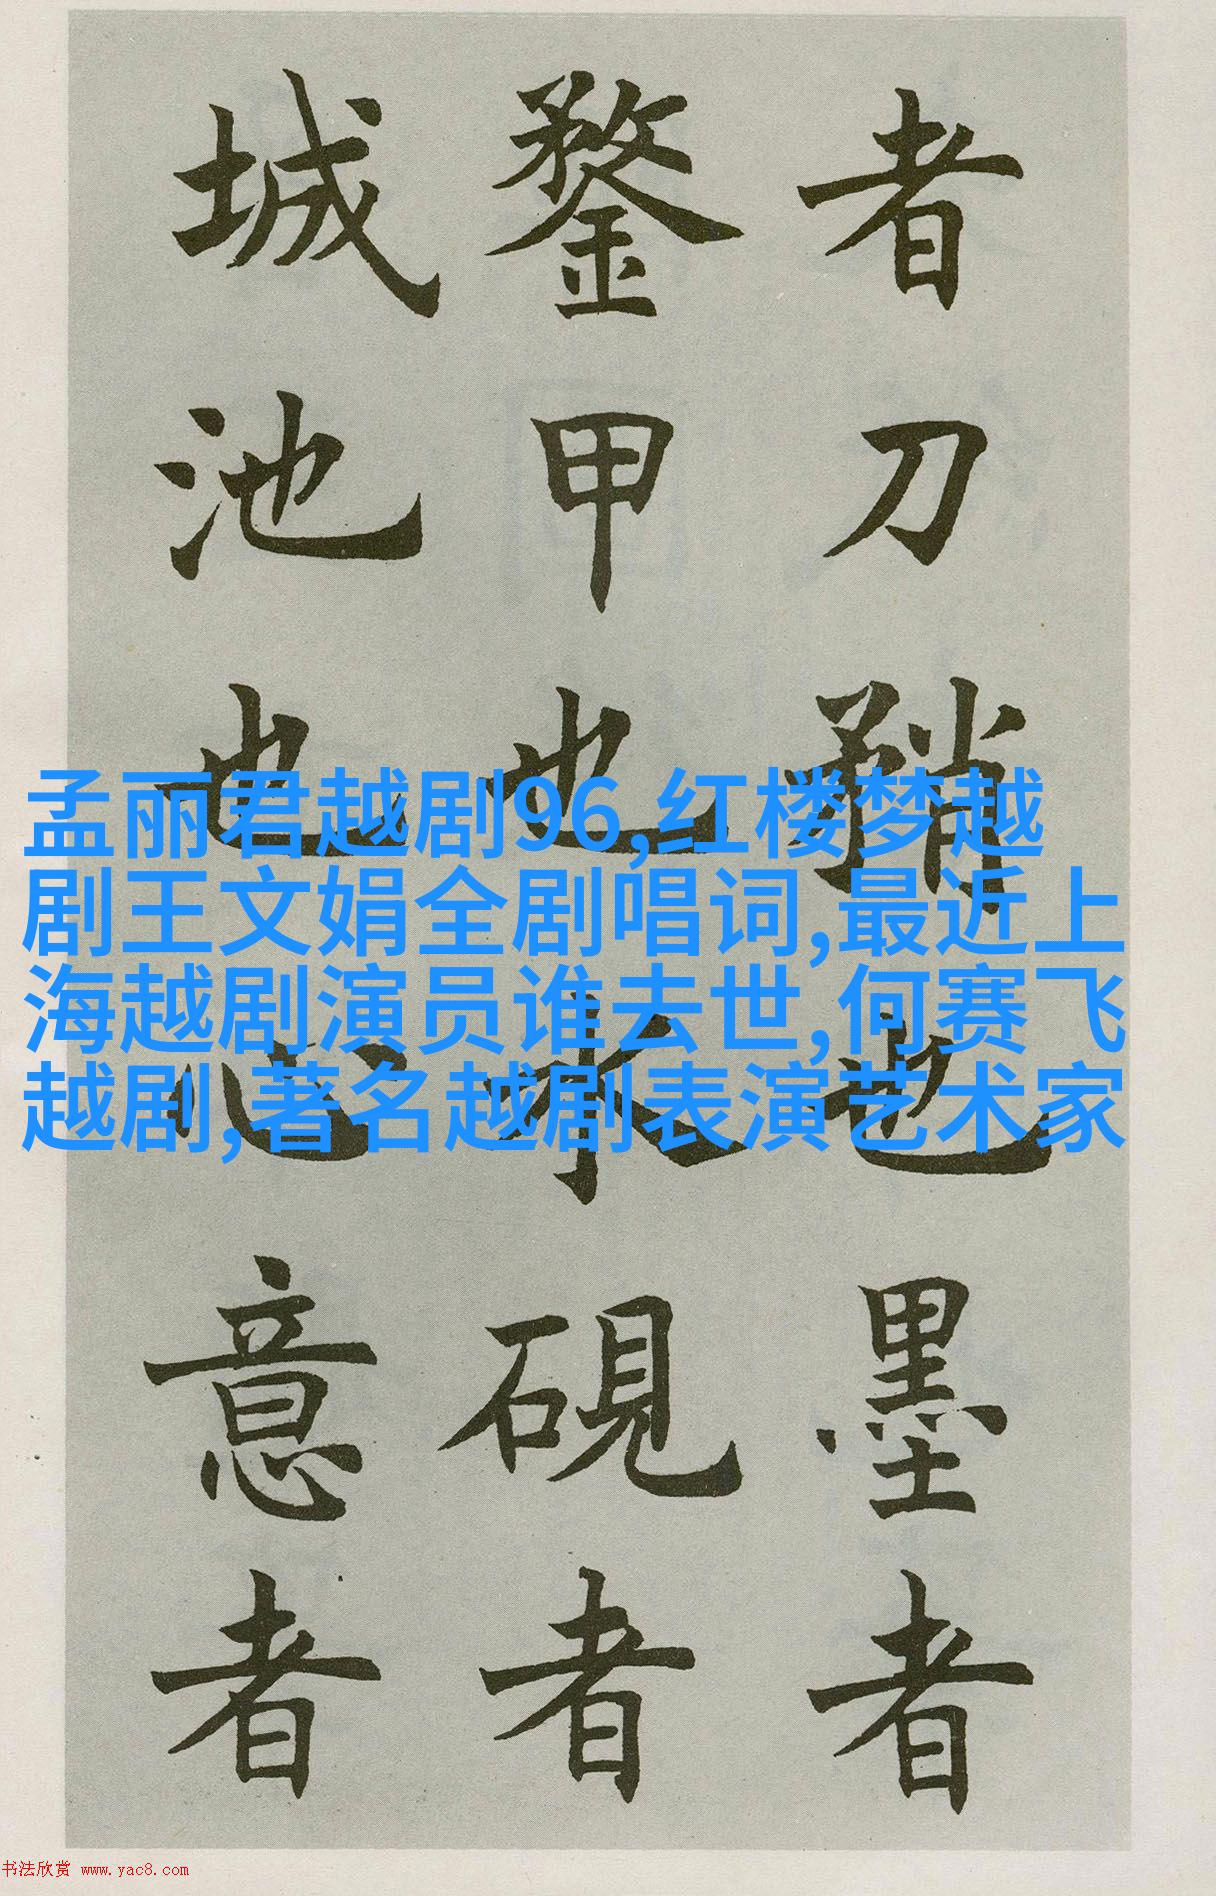 者刀矟也墨者
鍪甲也水硯者
城池也心意者
孟丽君越剧96,红楼梦越
剧王文娟全剧唱词,最近上
海越剧演员谁去世,何赛飞
越剧,著名越剧表演艺术家
书法欣赏 www.yac8.com